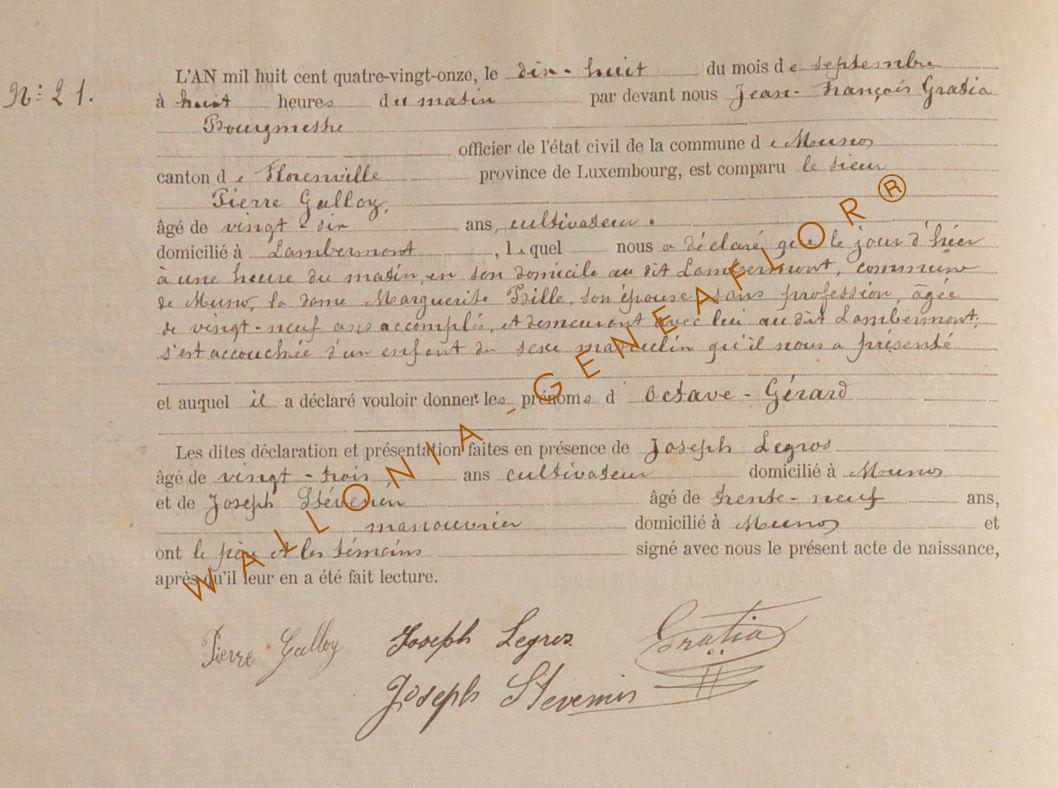 N° 21.
L'AN mil huit cent quatre-vingt-onze, le dix-huit du mois de septembre
à huit heures du matin par devant nous Jean-François Gratia
Bourgmestre
officier de l'état civil de la commune de Muno
canton de Florenville province de Luxembourg, est comparu le sieur
Pierre Galloy,
âgé de vingt-six ans, cultivateur.
domicilié à Lambermont, lequel nous a déclaré que le jour d'hier
à une heure du matin, en son domicile au dit Lambermont, commune
de Muno, la dame Marguerite Psille, son épouse, sans profession, âgée
de vingt-neuf ans accomplis, et demeurant avec lui au dit Lambermont,
s'est accouchée d'un enfant du sexe masculin qu'il nous a présenté
et auquel il a déclaré vouloir donner les prénoms d'Octave-Gérard
Les dites déclaration et présentation faites en présence de Joseph Legros
âgé de vingt-trois ans cultivateur domicilié à Muno
et de Joseph Stévenin âgé de trente-neuf ans,
manouvrier domicilié à Muno et
ont le père et les témoins signé avec nous le présent acte de naissance,
après qu'il leur en a été fait lecture.
Pierre Galloy Joseph Legros Gratia
Joseph Stevenin
WALLONIA-GENEAFLOR®